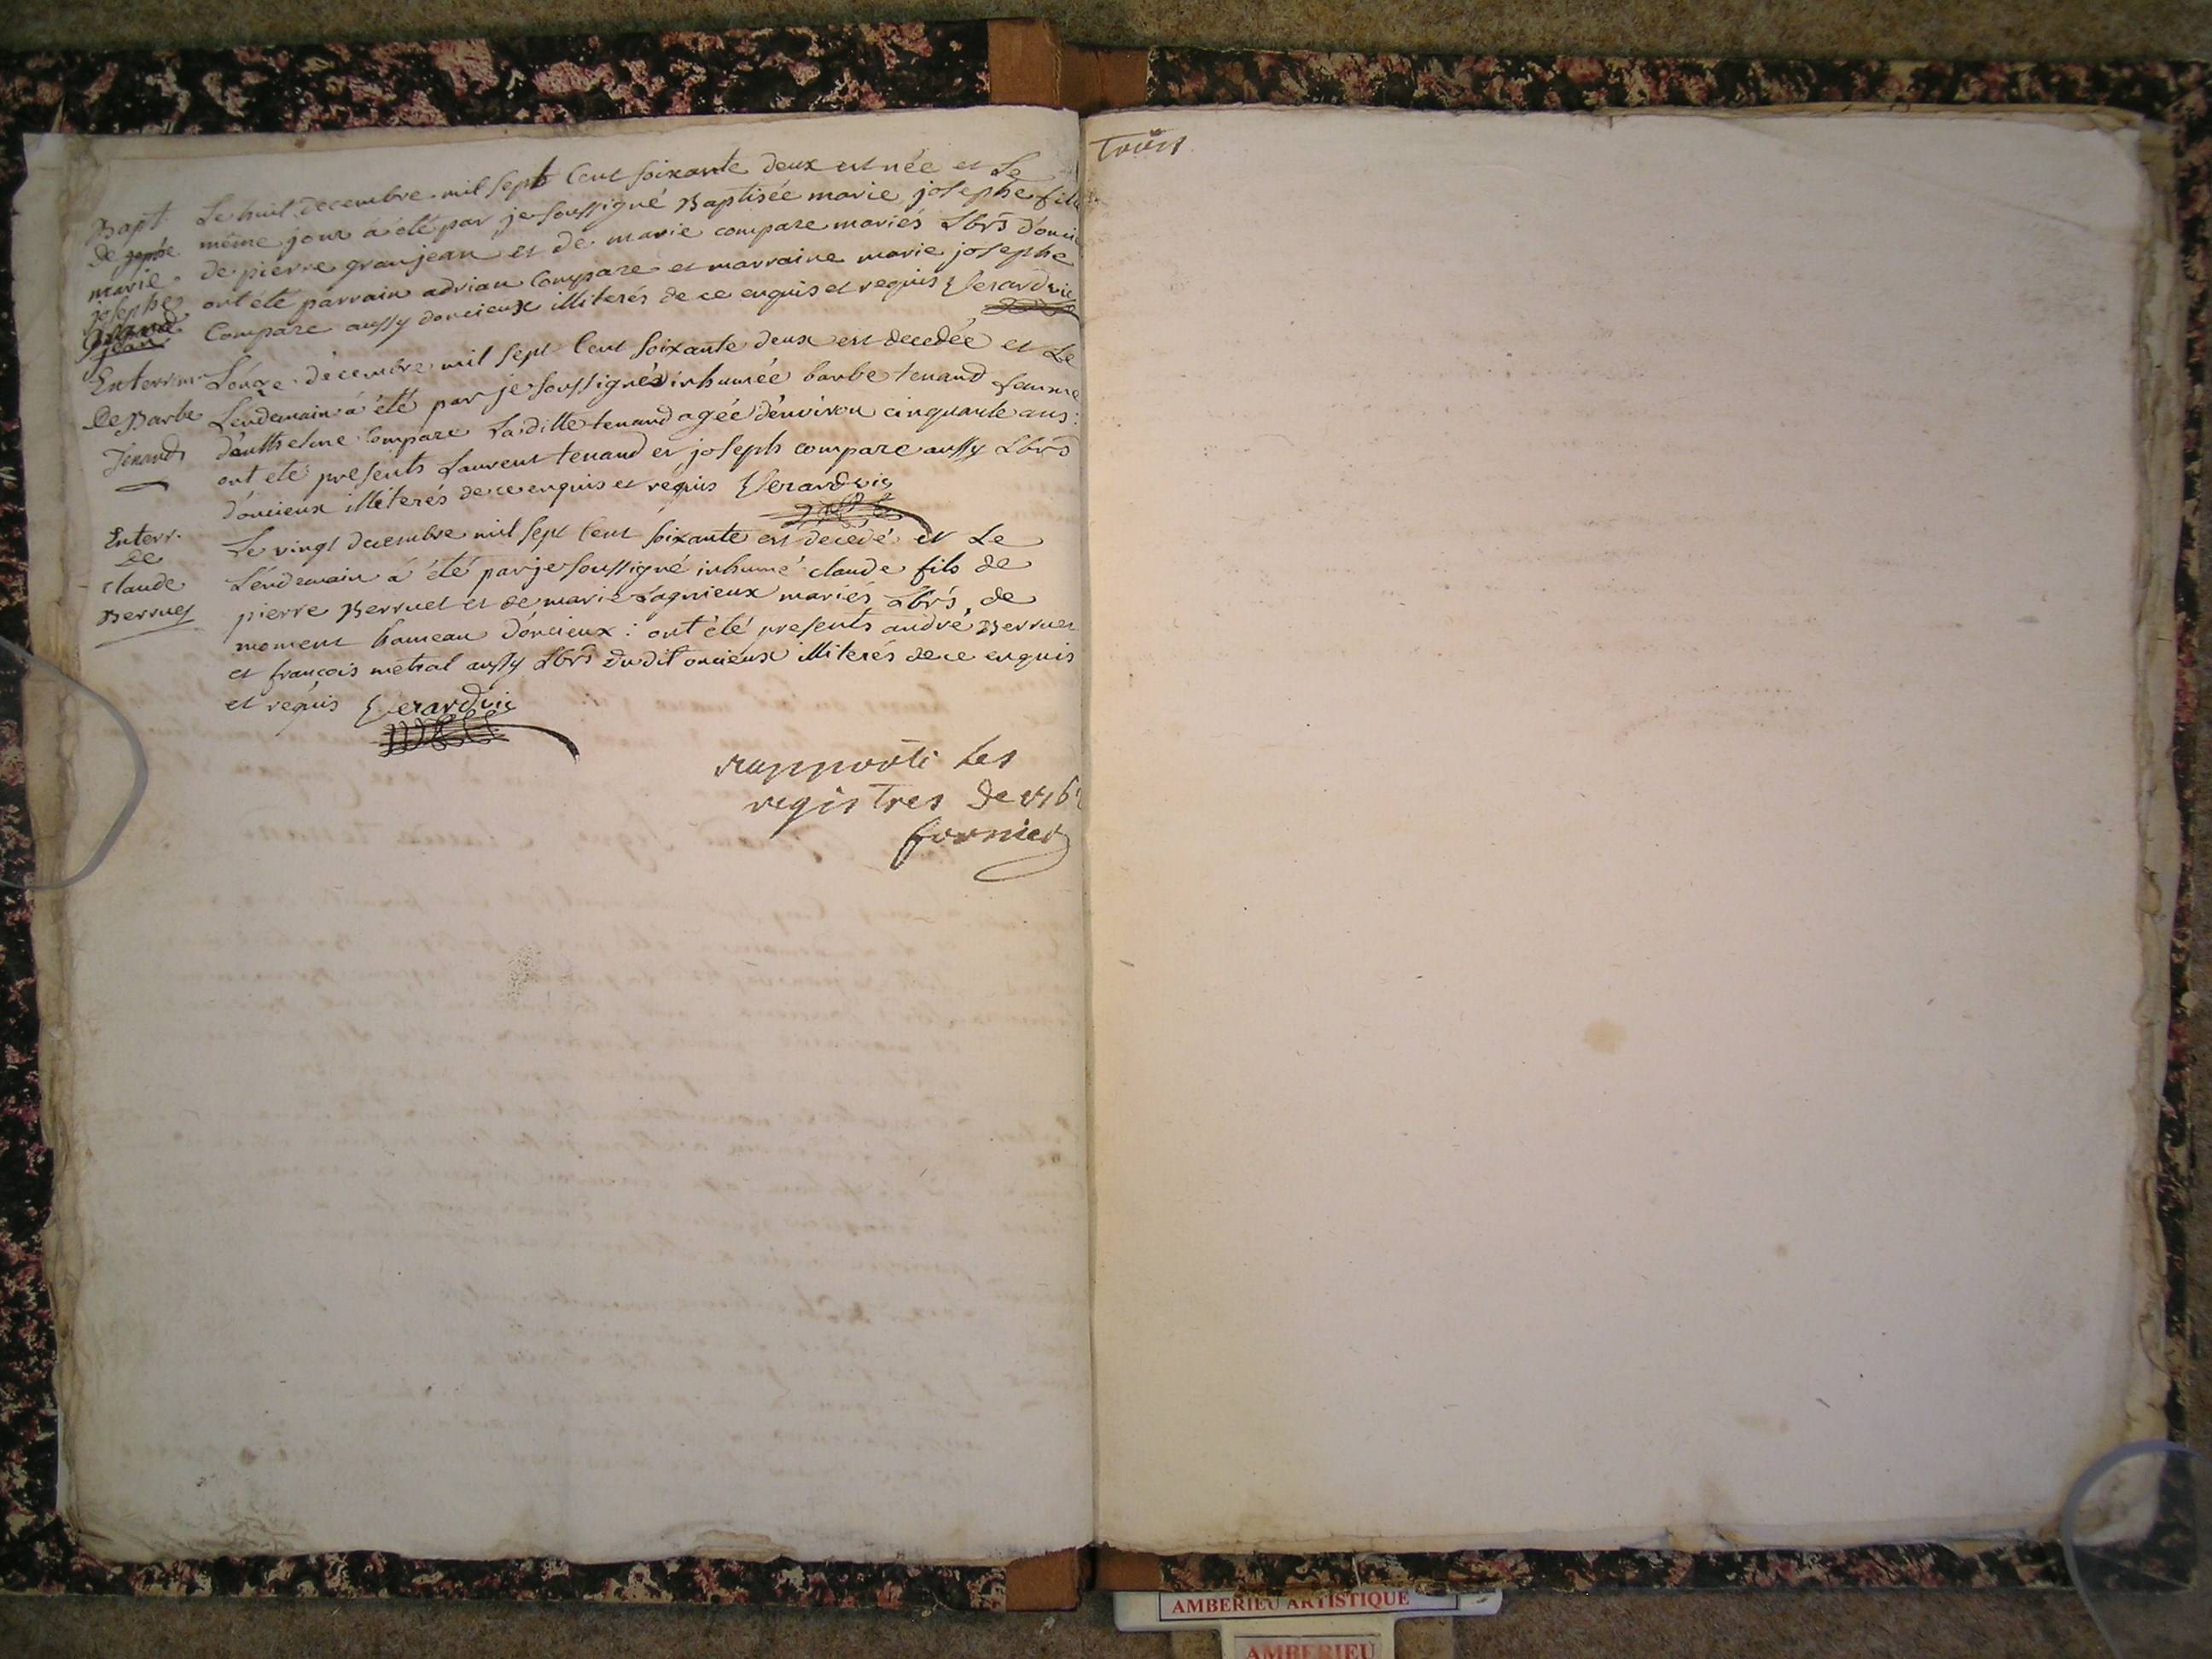 Bapt
De
marie
josephe
grand
jean
Le huit decembre mil sept cent soixante deux est née et Le
même jour á été par je soussigné Baptisée marie josephe fille
de pierre granjean et de marie compare mariés Lbrs d'onci
ont été parrain adrian Compare et marraine marie josephe
Compare aussy doncieux illiterés de ce enquis et requis Gerard vic
Enterrm
De Barbe
Tenand
L'onze decembre mil sept cent soixante deux est decedée et Le
Lendemain á été par je soussigné inhumée barbe tenand femme
d'anthelme Compare Laditte tenand agée d'environ cinquante ans:
ont été presents Laurent tenand et joseph compare aussy Lbrs
d'oncieux illiterés de ce enquis et requis Gerard vic
Enterr.
De
Claude
Berruet
Le vingt decembre mil sept cent soixante est decedé et Le
Lendemain á été par je soussigné inhumé claude fils de
pierre Berruet et de marie Lagnieux mariés Lbrs de
moment hameau d'oncieux: ont été presents andré Berruet
et françois metral aussy Lbrs dudit oncieux illiterés de ce enquis
et requis Gerard vic
rapporté les
registres de 1762
fornier
Trois
AMBERIEU ARTISTIQUE
AMBERIEU